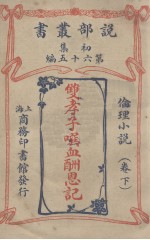 說部叢書
初集
第六十五編
倫理小說（卷下）
雙孝子噀血酬恩記
上海
商務印書館發行